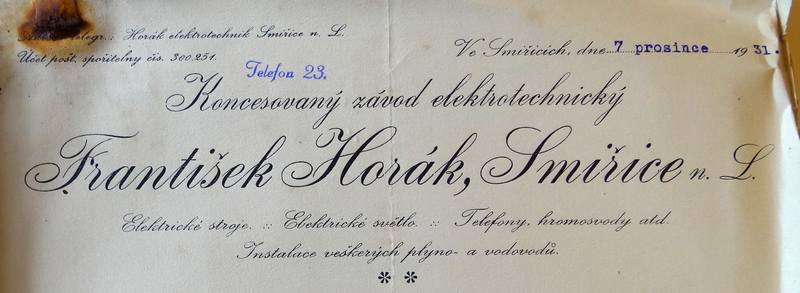 telegr.: Horák elektrotechnik Smiřice n. L.
Účet pošt. spořitelny čís. 300.251.
Ve Smiřicích, dne 7 prosince 1931.
Telefon 23.
Koncesovaný závod elektrotechnický
František Horák, Smiřice n. L.
Elektrické stroje. :: Elektrické světlo. :: Telefony, hromosvody atd.
Instalace veškerých plyno- a vodovodů.